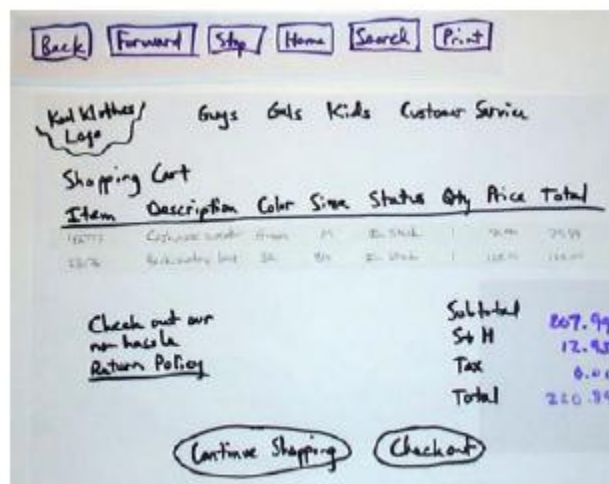 Back Forward Stop Home Search Print
Kool Klothes Guys Gals Kids Customer Service
Logo
Shopping Cart
Item Description Color Size Status Qty Price Total
Cashmere sweater Green M In Stock 1
In Stock 1
Check out our
no hassle
Return Policy
Subtotal 207.99
S+H 12.95
Tax
Total
Continue Shopping Checkout